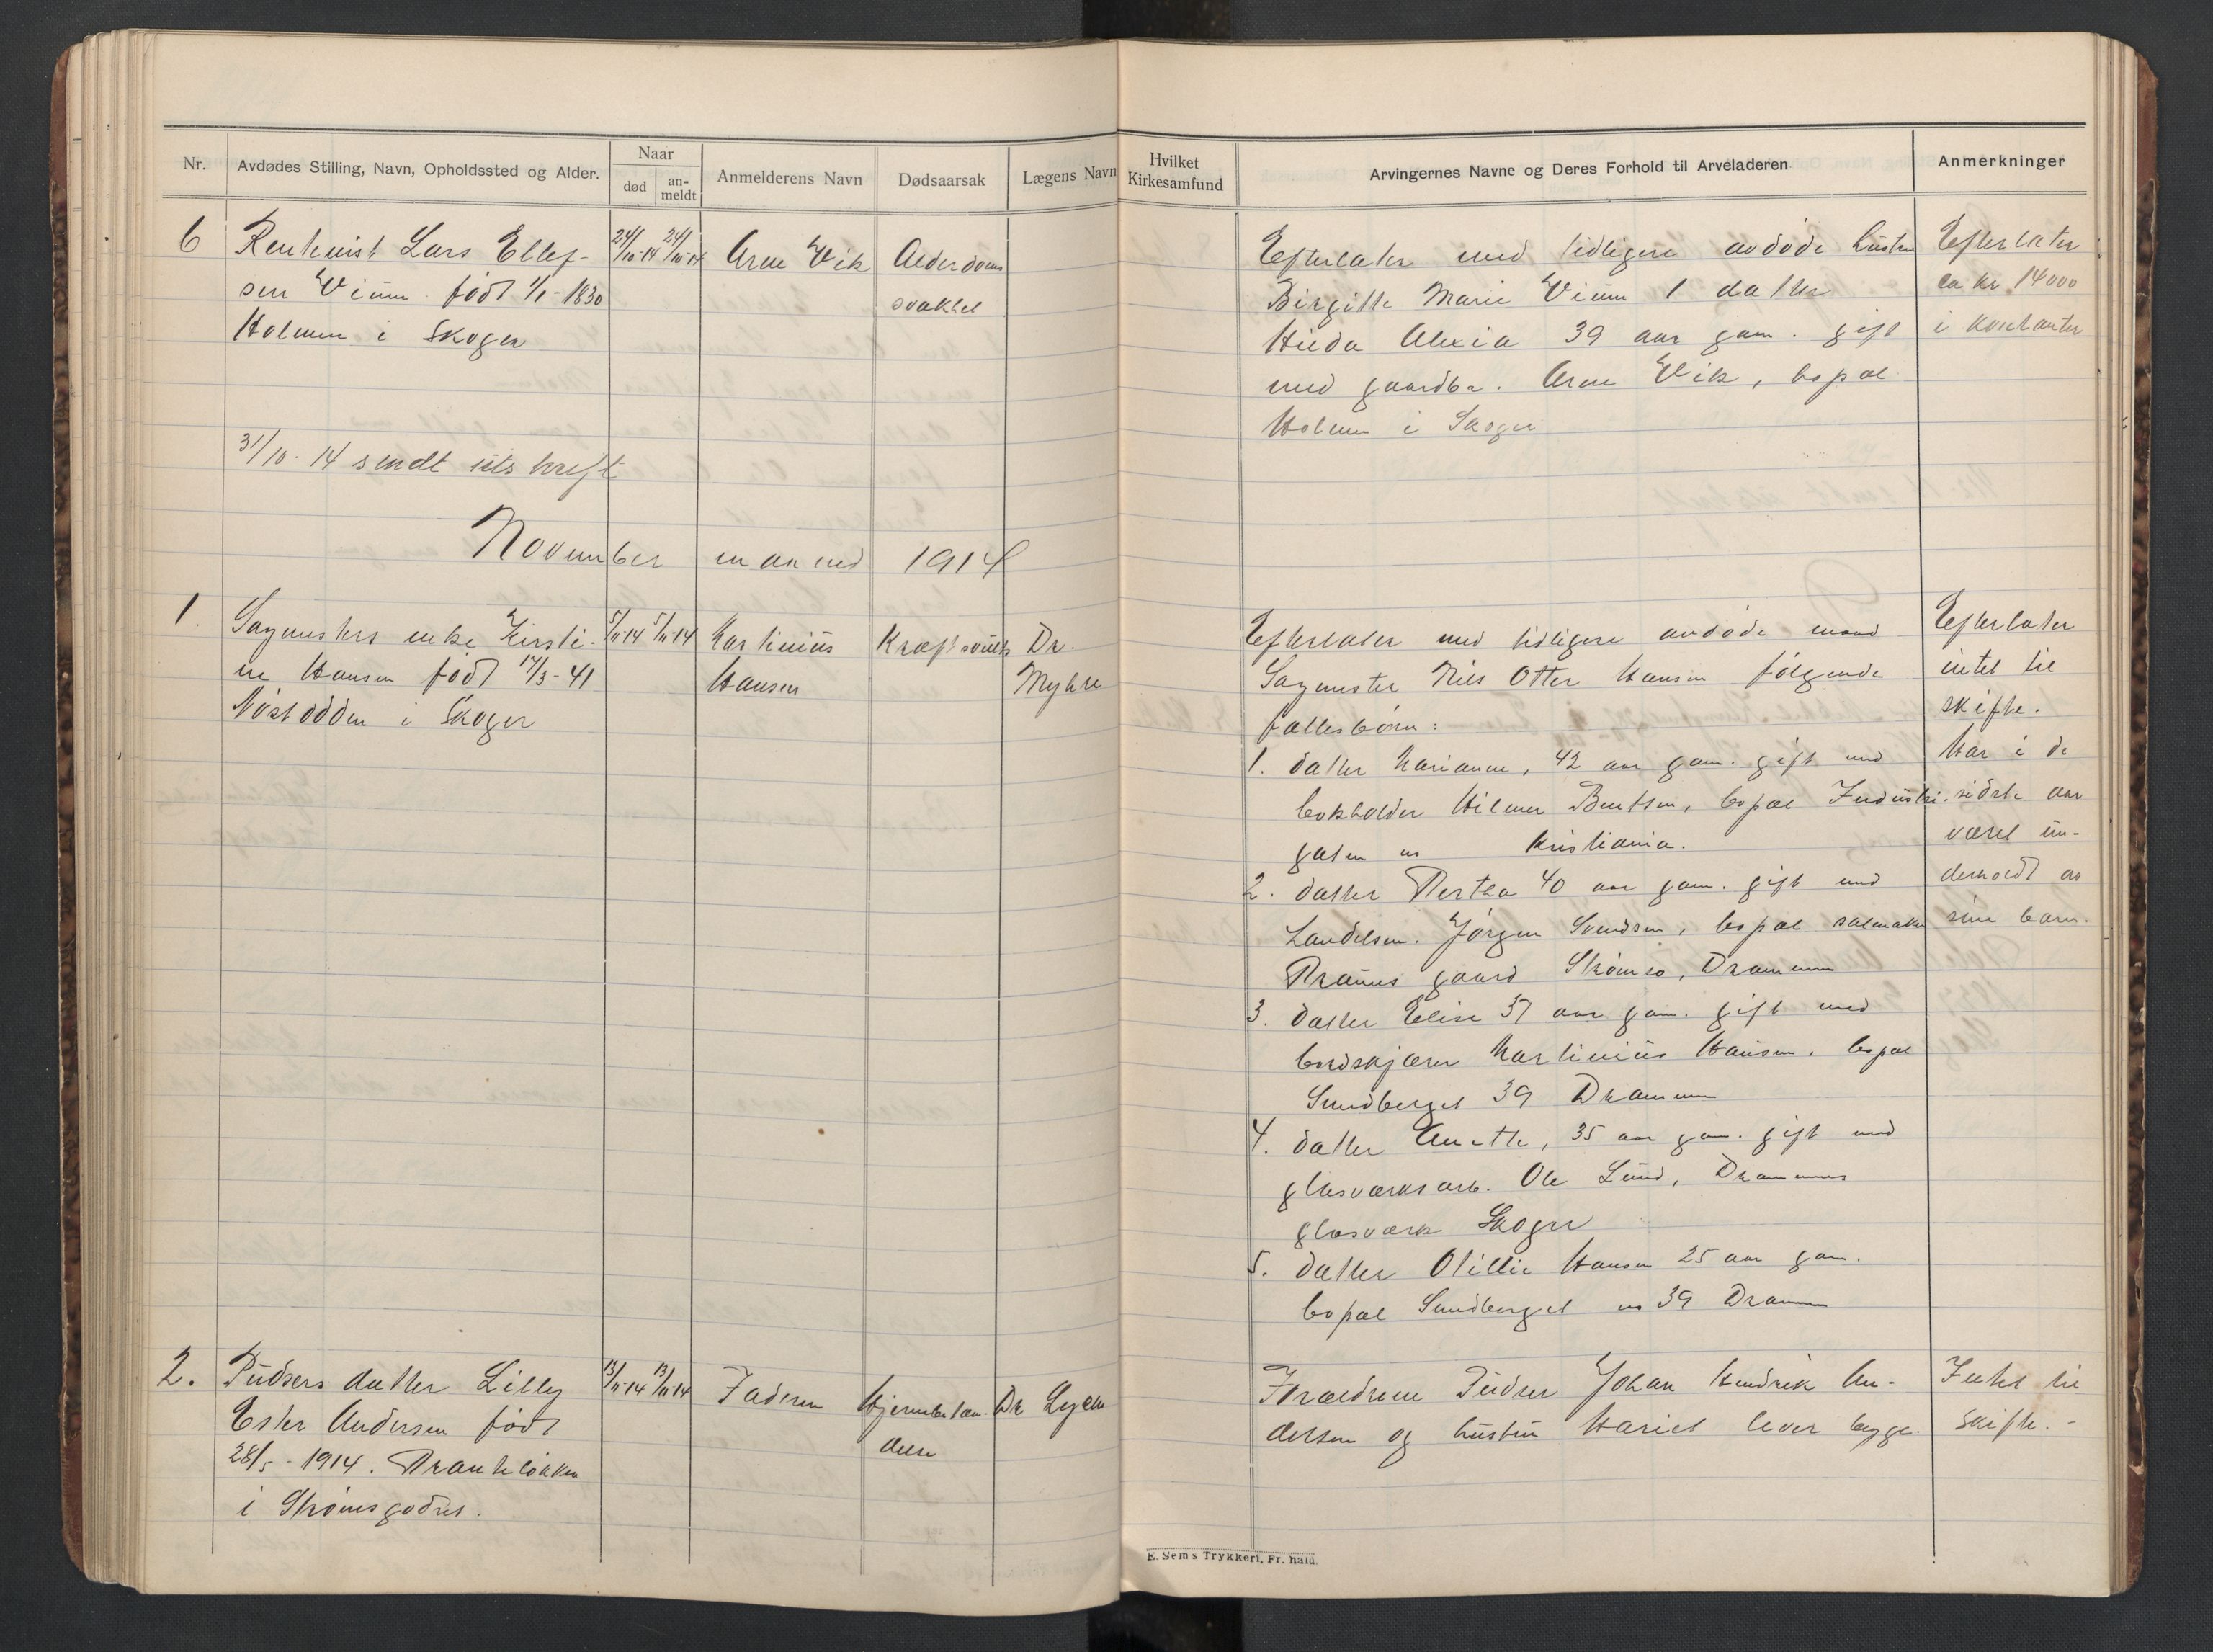 Nr.
Avdødes Stilling, Navn, Opholdssted og Alder.
Naar
død
an-
meldt
Anmelderens Navn
Dødsaarsak
Lægens Navn
Hvilket
Kirkesamfund
Arvingernes Navne og Deres Forhold til Arveladeren
Anmerkninger
6
Lars Ellef-
sen Vium født 1/1-1830
Holmen i Skoger
24/10-14
24/10-14
Arne Vik
Alderdoms
svakhet
Efterlater med tidligere avdøde hustru
Birgitte Marie Vium 1 datter
Hilda Alexia 39 aar gam. gift
med gaardbr. Arne Vik, bopæl
Holmen i Skoger
Efterlater
ca kr 14000
i kontanter
31/10-14 sendt utskrift
November maaned 1914
1.
Sagmesters enke Kirsti-
ne Hansen født 17/3-41
Nøstodden i Skoger
5/11-14
5/11-14
Martinius
Hansen
Kræftsvulst
Dr.
Myhre
Efterlater med tidligere avdøde mand
Sagmester Nils Otter Hansen følgende
fællesbørn:
1. datter Marianne, 42 aar gam. gift med
bokholder Hilmer Berntsen, bopæl Industri-
gaten no Kristiania.
2. datter Bertha 40 aar gam. gift med
Landelsm. Jørgen Svendsen, bopæl salmaker
Brauns gaard Strømsø, Drammen
3. datter Elise 37 aar gam. gift med
bordskjærer Martinius Hansen, bopæl
Sundberget 39 Drammen
4. datter Anette, 35 aar gam. gift med
glasværksarb. Ole Lund, Drammens
glasværk Skoger
5. datter Otillie Hansen 25 aar gam.
bopæl Sundberget no 39 Drammen
Efterlater
intet til
skifte.
Har i de
sidste aar
været un-
derholdt av
sine barn.
2.
Pudsers datter Lilly
Ester Andersen født
28/5-1914.
i Strømsgodset.
13/11-14
13/11-14
Faderen
Hjernebetæn-
delse
Dr
Forældrene Pudser Johan Hendrik An-
dersen og hustru Mariel lever begge.
Intet til
skifte.-
E. Sem's Trykkeri, Fr. hald.